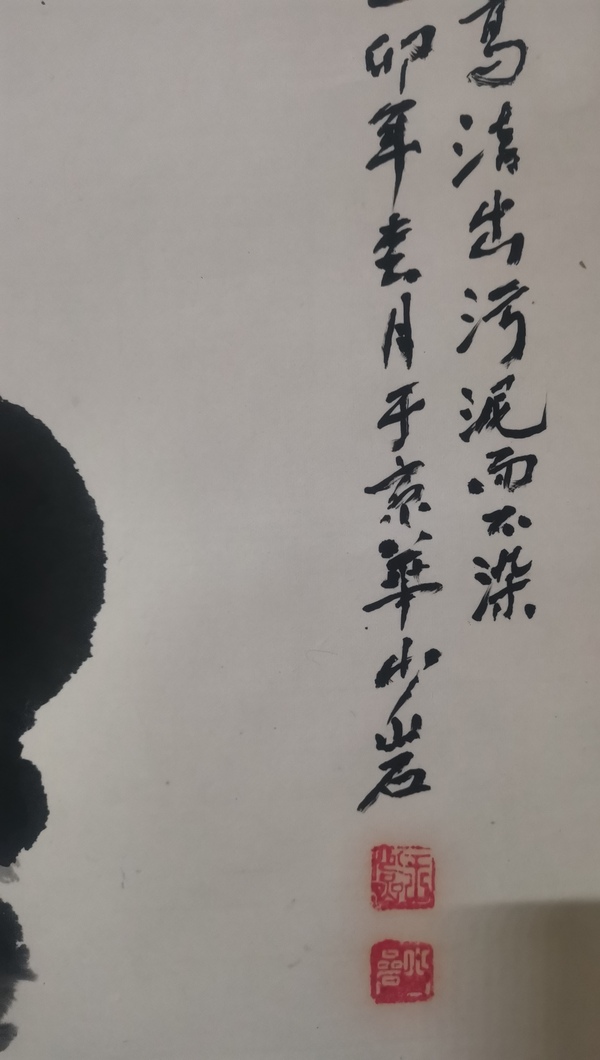 高清出污泥而不染
卯年春月于京華少岩